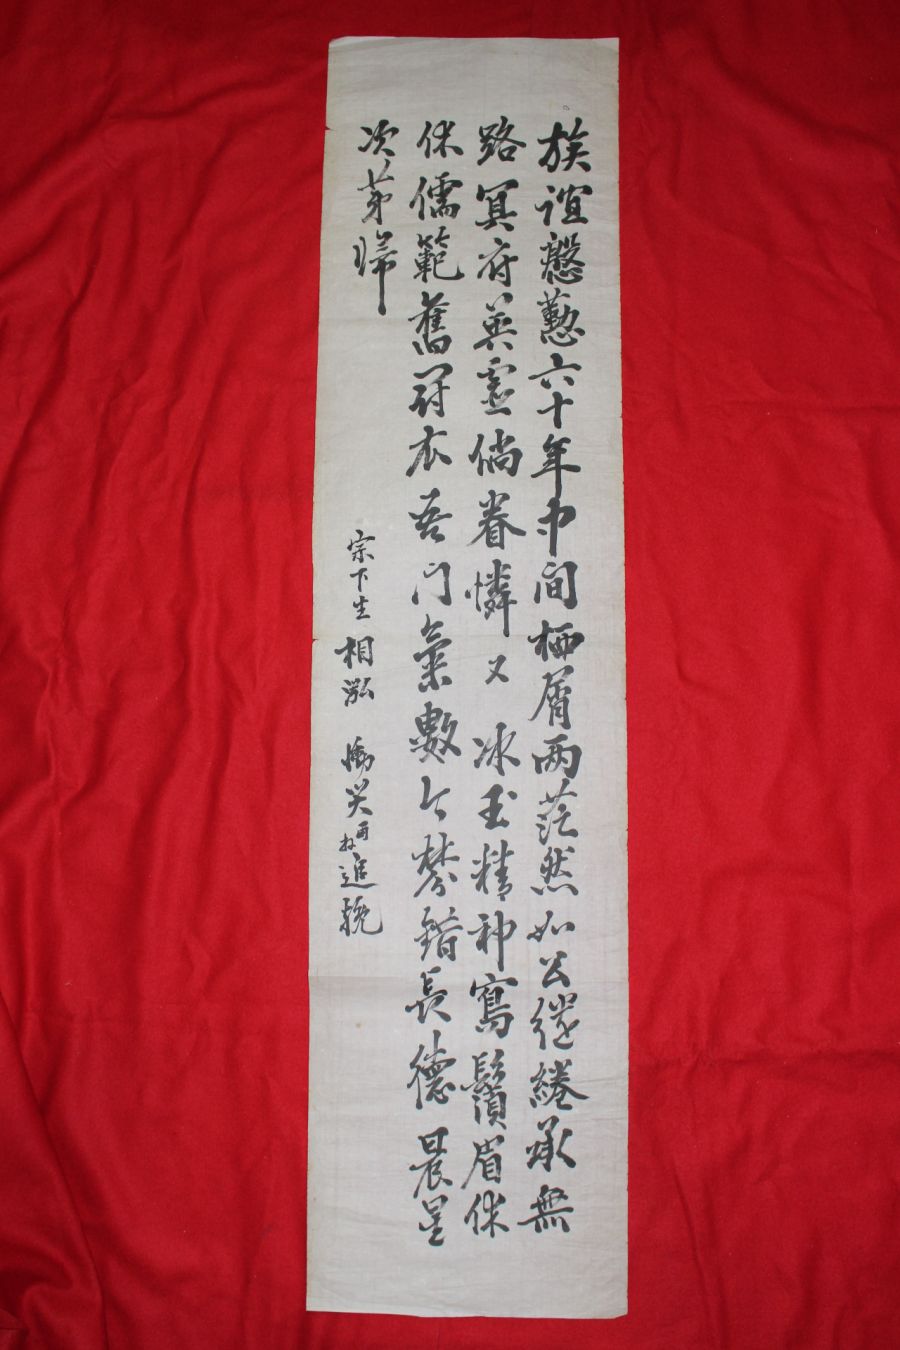 族誼慇懃六十年中間栖屑兩茫然如公繾綣承無
路冥府英靈倘眷憐 又 氷玉精神寫鬚眉休
休儒範舊冠衣吾門氣數今棼錯長德晨星
次第歸
宗下生 相泓 慟哭再拜追輓